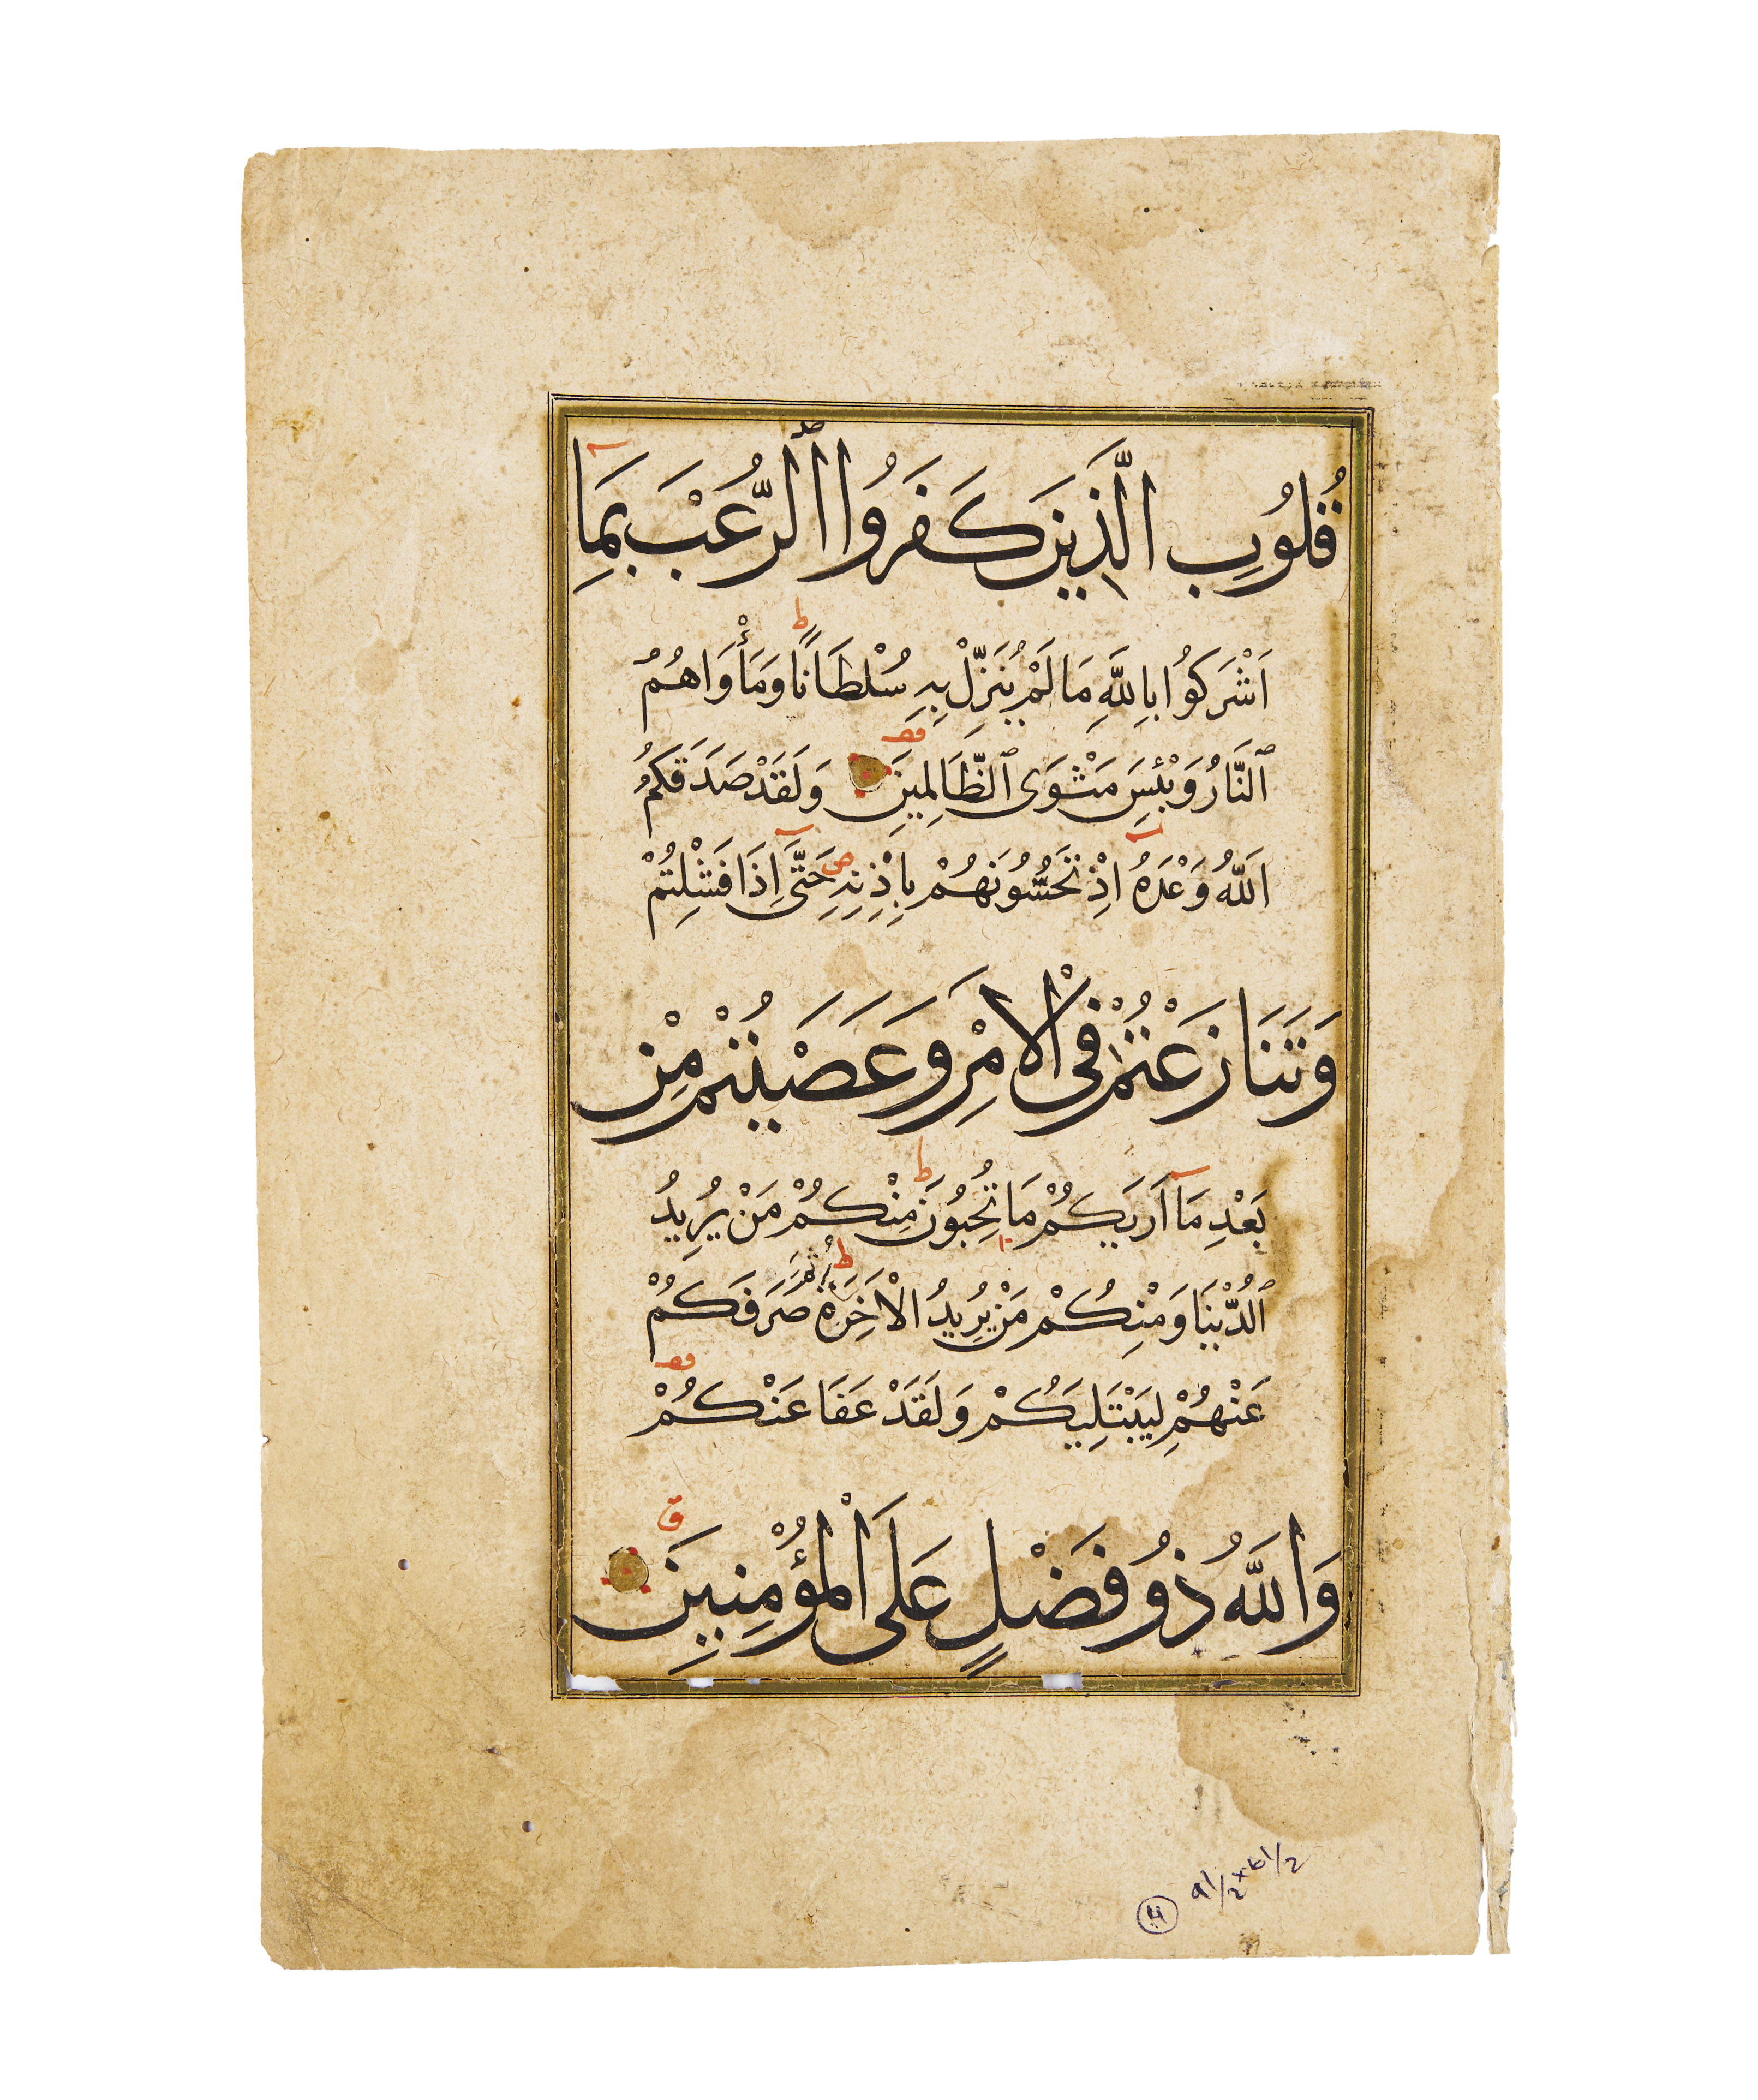 قُلُوبِ الَّذِينَ كَفَرُوا ٱلرُّعْبَ بِمَا
اَشْرَكُوا بِاللّٰهِ مَا لَمْ يُنَزِّلْ بِهِ سُلْطَانًا وَمَأْوَاهُمُ
ٱلنَّارُ وَبِئْسَ مَثْوَى ٱلظَّالِمِينَ وَلَقَدْ صَدَقَكُمُ
اللّٰهُ وَعْدَهُ اِذْ تَحُسُّونَهُمْ بِاِذْنِهِ حَتَّى اِذَا فَشِلْتُمْ
وَتَنَازَعْتُمْ فِى الْاَمْرِ وَعَصَيْتُمْ مِنْ
بَعْدِ مَا اَرٰيكُمْ مَا تُحِبُّونَ مِنْكُمْ مَنْ يُرِيدُ
ٱلدُّنْيَا وَمِنْكُمْ مَنْ يُرِيدُ الْاٰخِرَةَ ثُمَّ صَرَفَكُمْ
عَنْهُمْ لِيَبْتَلِيَكُمْ وَلَقَدْ عَفَا عَنْكُمْ
وَاللّٰهُ ذُو فَضْلٍ عَلَى الْمُؤْمِنِينَ